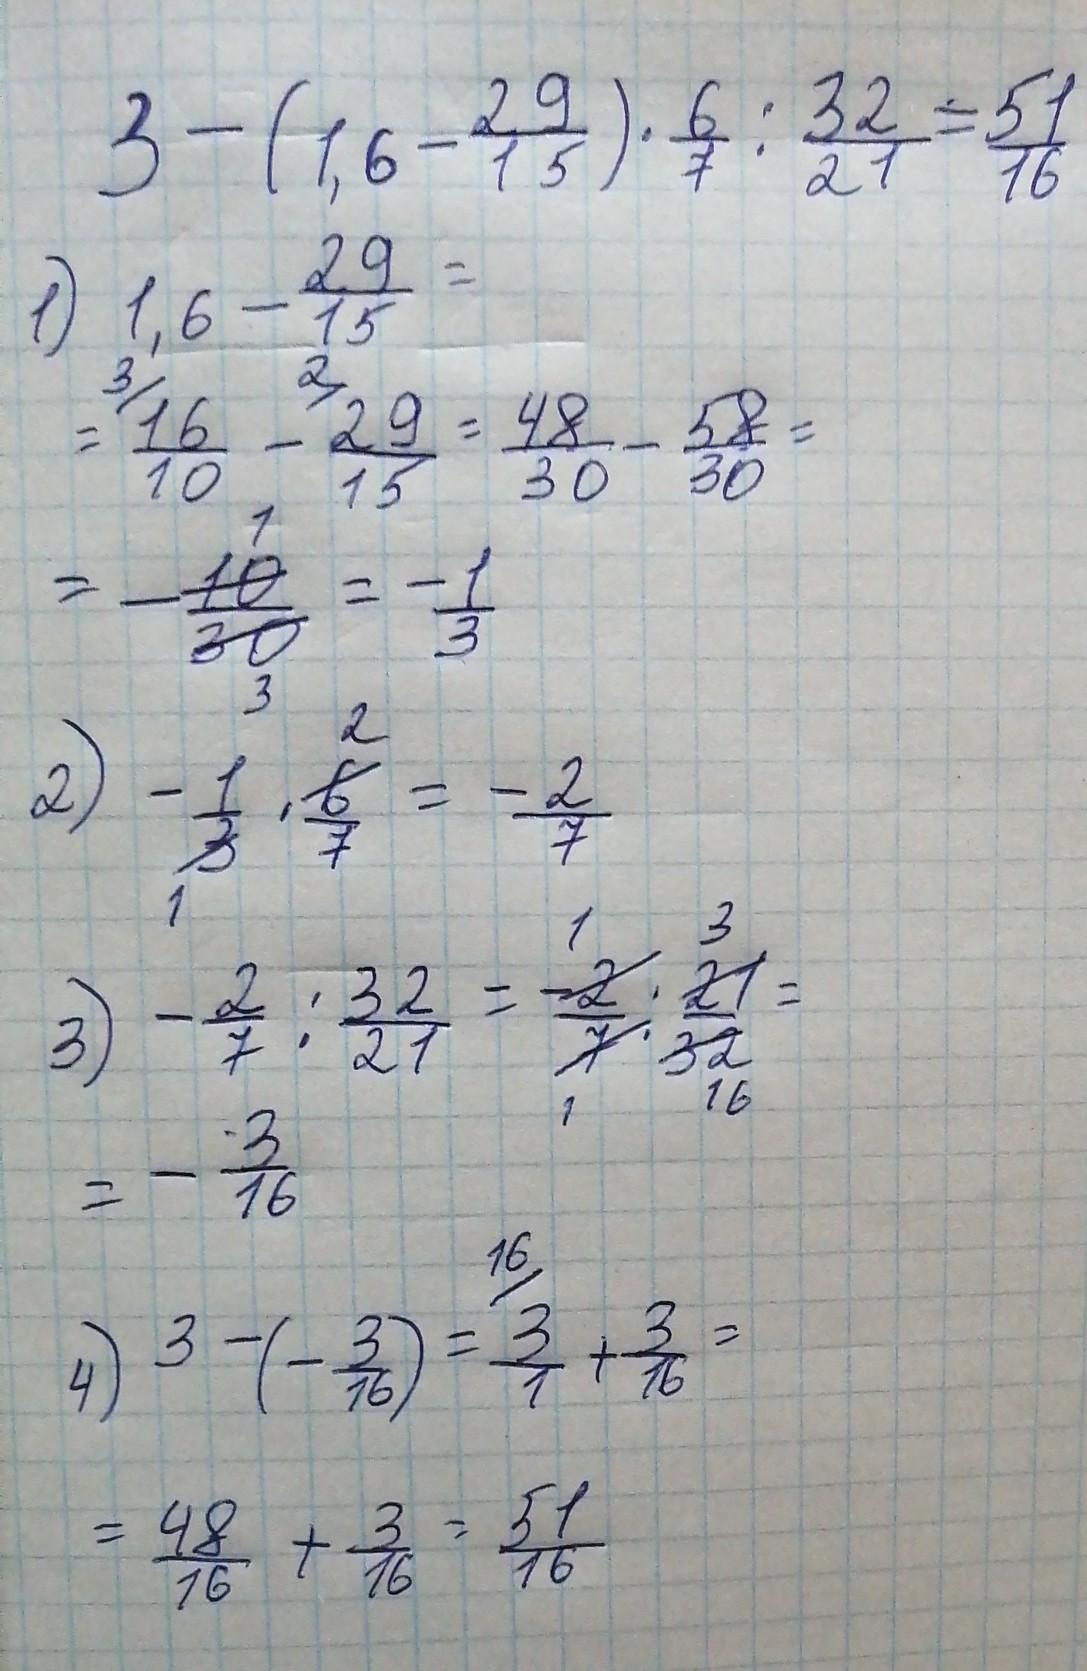 3 - (1,6 - 29/15) · 6/7 : 32/21 = 51/16
1) 1,6 - 29/15 =
= 3/ 16/10 - 2/ 29/15 = 48/30 - 58/30 =
= - 10/30 1 3 = - 1/3
2) - 1/3 1 · 6/7 2 = - 2/7
3) - 2/7 : 32/21 = - 2/7 1 1 · 21/32 3 16 =
= - 3/16
4) 3 - (- 3/16) = 16/ 3/1 + 3/16 =
= 48/16 + 3/16 = 51/16